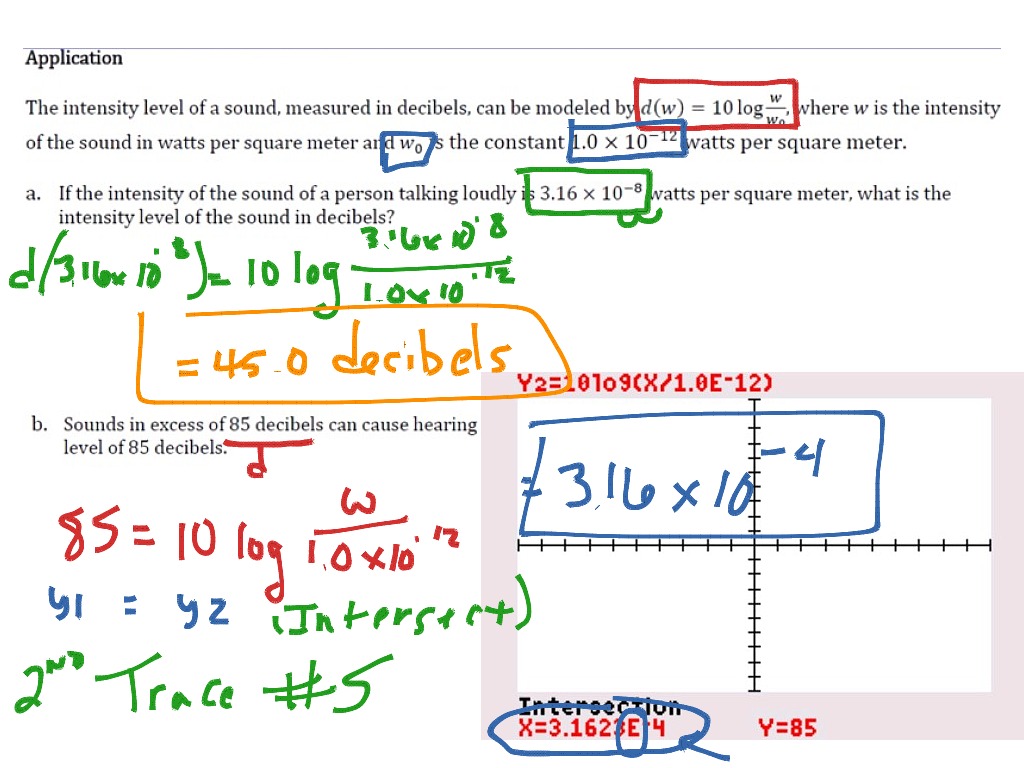 Application
The intensity level of a sound, measured in decibels, can be modeled by d(w) = 10 log w/w₀, where w is the intensity
of the sound in watts per square meter and w₀ is the constant 1.0 × 10⁻¹² watts per square meter.
a. If the intensity of the sound of a person talking loudly is 3.16 × 10⁻⁸ watts per square meter, what is the
intensity level of the sound in decibels?
d(3.16 × 10⁻⁸) = 10 log 3.16 × 10⁻⁸ / 1.0 × 10⁻¹²
= 45.0 decibels
Y2=10log(X/1.0E-12)
b. Sounds in excess of 85 decibels can cause hearing
level of 85 decibels.
d
= 3.16 × 10⁻⁴
85 = 10 log w / 1.0 × 10⁻¹²
y1 = y2 (Intersect)
2ND Trace #5
Intersection
X=3.1623E-4 Y=85